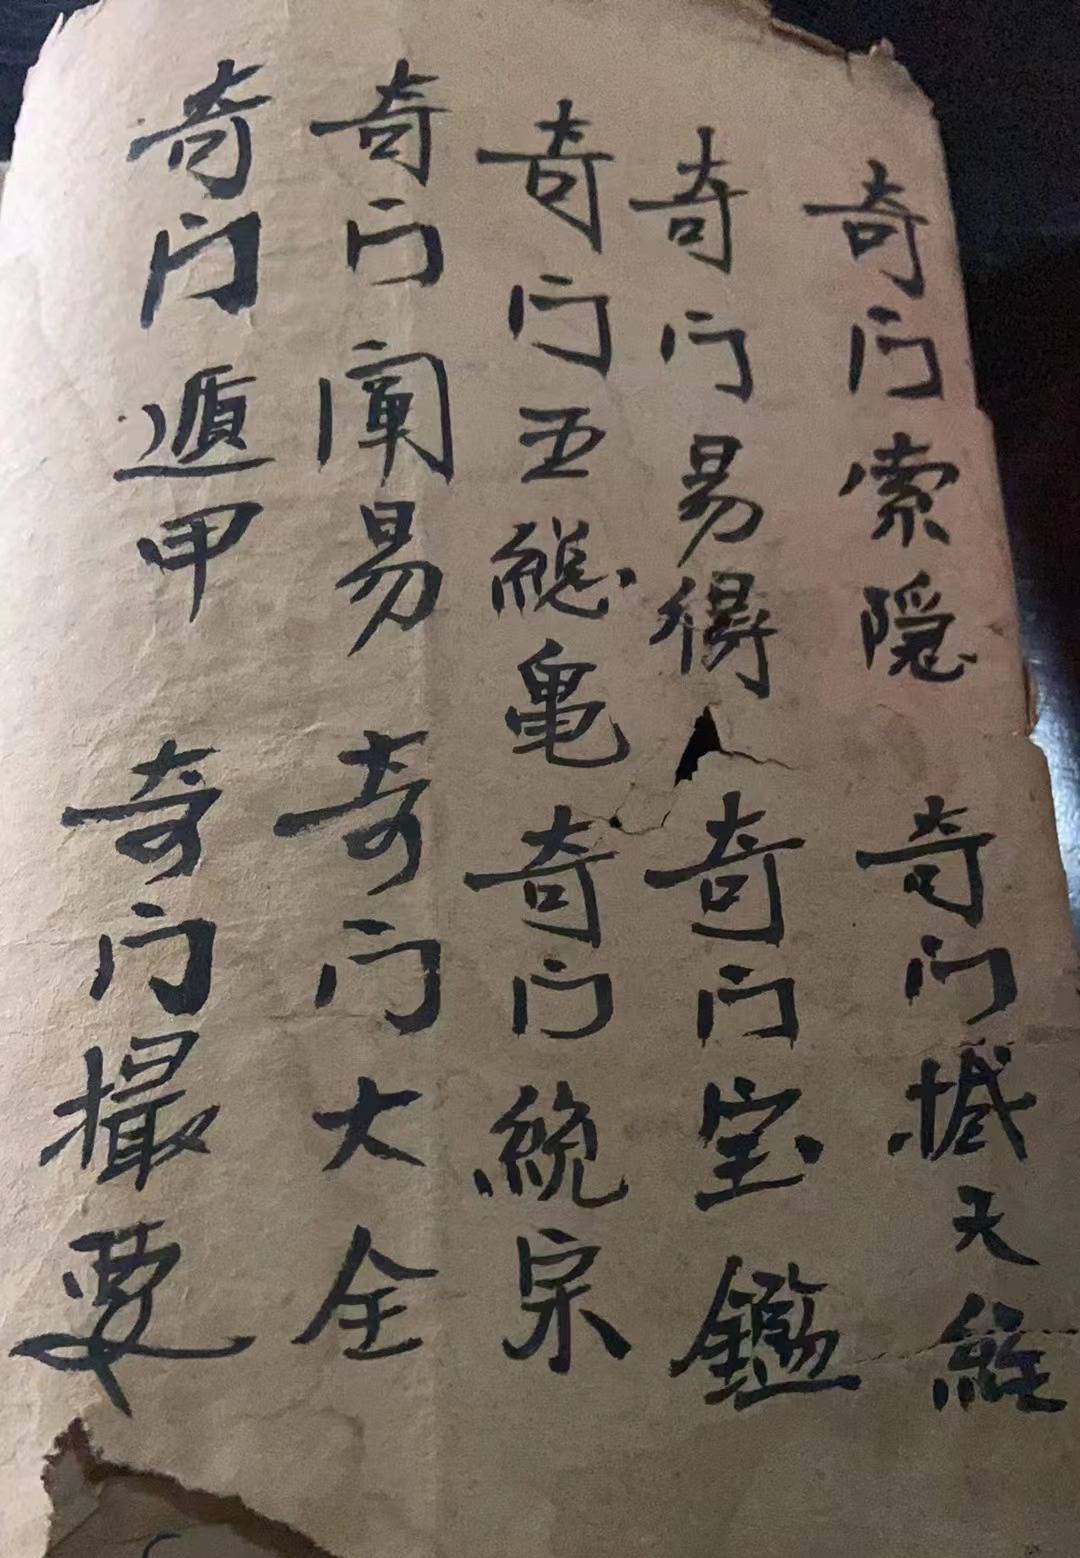 奇门索隐 奇门撼天经
奇门易得 奇门宝鑑
奇门五总龟 奇门统宗
奇门阐易 奇门大全
奇门遁甲 奇门撮要